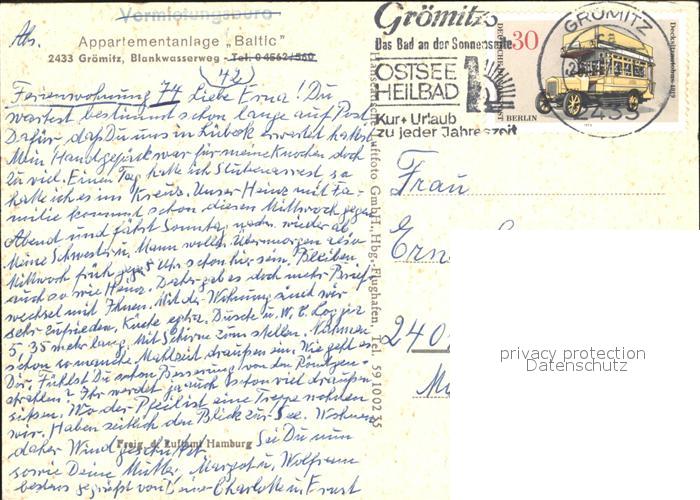 Vermietungsbüro
Abs. Appartementanlage „Baltic"
2433 Grömitz, Blankwasserweg - Tel. 0 4562/560
(42)
Ferienwohnung 74 Liebe Erna! Du
wartest bestimmt schon lange auf Post
Dafür, daß Du uns in Lübeck erwartet hattest
Mein Handgepäck war für meine Knochen doch
zu viel. Einen Tag hatte ich Stubenarrest so
hatte ich es im Kreuz. Unser Heinz mit Fa-
milie kommt schon diesen Mittwoch gegen
Abend und fährt Sonntag wieder ab
Meine Schwester u. Mann wollen Übermorgen also
Mittwoch früh gegen 5 Uhr schon hier sein. Bleiben
auch so wie Heinz. Daher gab es doch mehr Brief
wechsel mit Ihnen. Mit der Wohnung sind wir
sehr zufrieden. Küche extra. Dusche u. W.C. Loggia
5,35 meter lang. Mit Schirm zum stellen. Nahmen
schon so manche Mahlzeit draußen ein. Wie geht es
Dir. Fühlst Du schon Besserung von den Röntgen-
strahlen? Ihr werdet ja auch schon viel draußen
sitzen. Wo der Pfeil ist eine Treppe wohnen
wir. Haben seitlich den Blick zur See. Wohnen
daher Windgeschützt
Freig. d. Luftamt Hamburg
Sei Du nun
sowie Deine Mutter, Margot u. Wolfram
bestens gegrüßt von Deine Charlotte u. Ernst
Luftfoto GmbH., Hbg.-Flughafen, Tel. 59 1002 35
Grömitz
Das Bad an der Sonnenseite
OSTSEE
HEILBAD
Kur + Urlaub
zu jeder Jahreszeit
30
DEUTSCHE BUNDESPOST
BERLIN
Decksitzomnibus 1919
GRÖMITZ
2433
Frau
Ern
240
privacy protection
Datenschutz